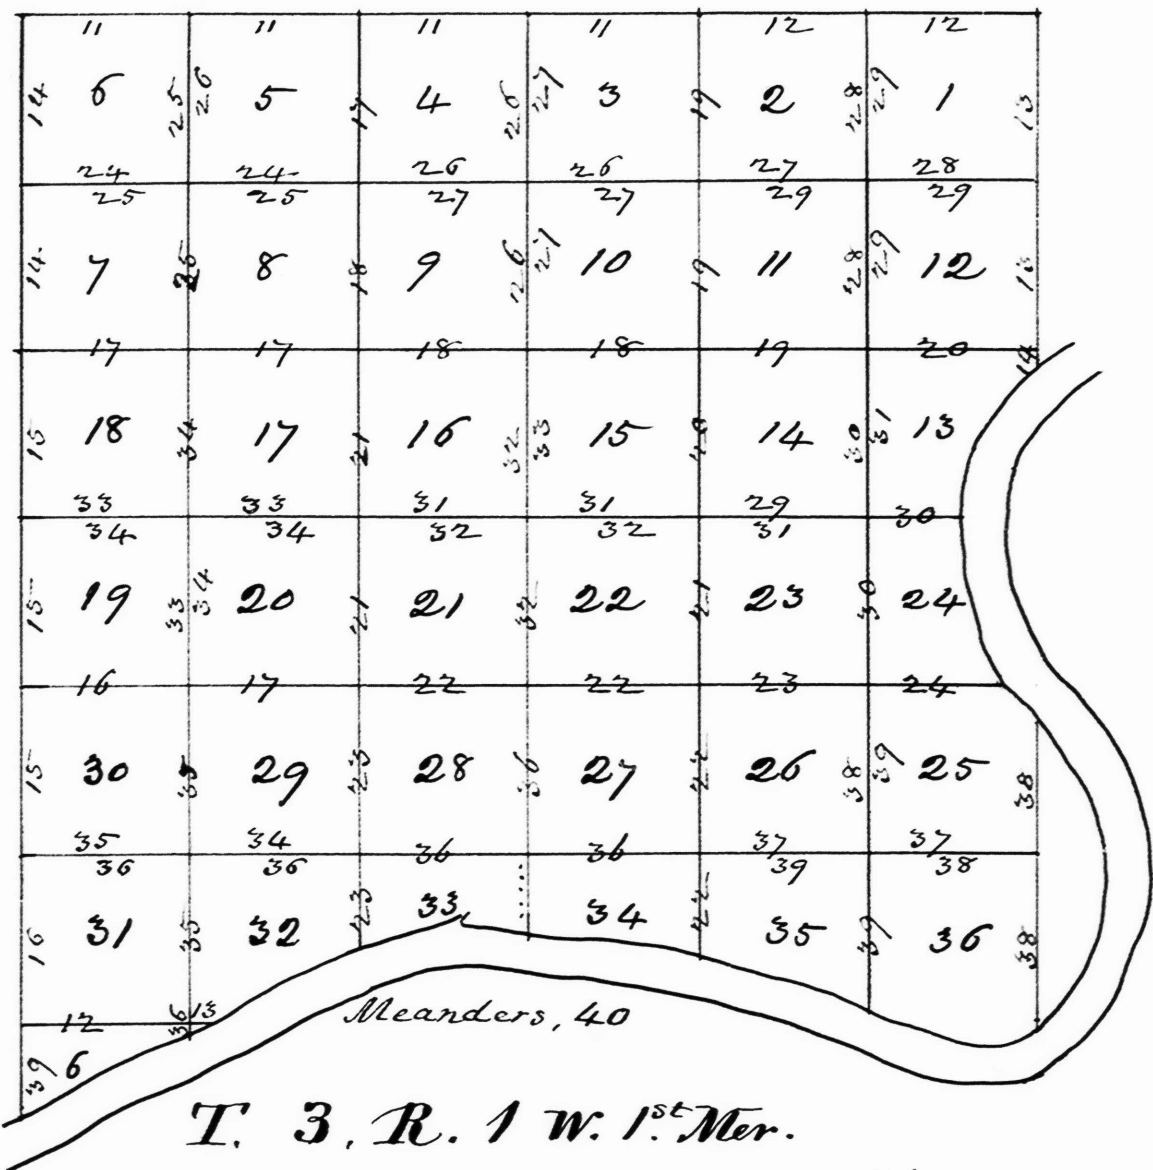 11 11 11 11 12 12
14 6 25 26 5 17 4 26 27 3 19 2 28 29 1 13
24 24 26 26 27 28
25 25 27 27 29 29
14 7 25 8 18 9 26 27 10 19 11 28 29 12 13
17 17 18 18 19 20 14
15 18 34 17 21 16 32 33 15 20 14 30 31 13
33 33 31 31 29 30
34 34 32 32 31
15 19 33 34 20 21 21 32 22 21 23 30 24
16 17 22 22 23 24
15 30 29 23 28 36 27 22 26 38 39 25 38
35 34 36 36 37 37
36 36 39 38
16 31 35 32 23 33 34 22 35 39 36 38
12 36 13
Meanders, 40
39 6
T. 3, R. 1 W. 1st. Mer.